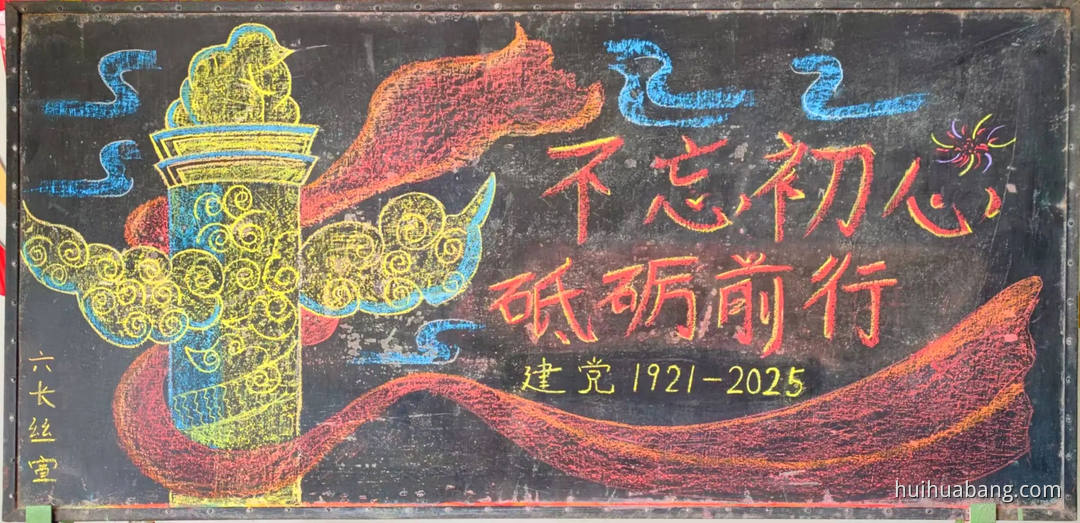 不忘初心
砥砺前行
建党1921-2025
六长丝宣
huihuabang.com